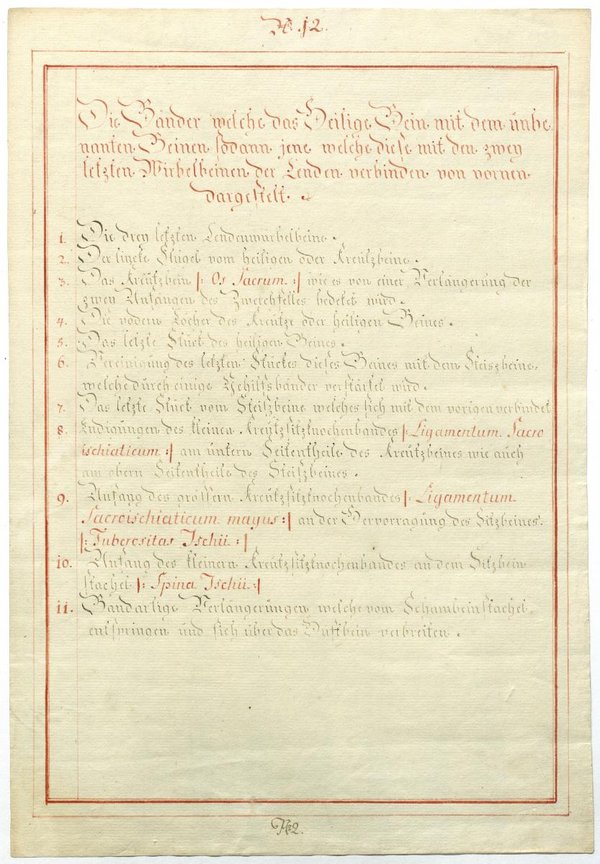 №. 12.
Die Bänder welche das Heilige Bein mit dem unbe
nanten Beinen sodann jene welche diese mit den zwey
letzten Wirbelbeinen der Lenden verbinden von vornen
dargestelt.
1. Die drey letzten Lendenwürbelbeine.
2. Der lincke Flügel vom heiligen oder Kreützbeine.
3. Das Kreützbein |: Os Sacrum :| wie es von einer Verlängerung der
zwey Anfängen des Zwerchfelles bedekt wird.
4. Die vodern Löcher des Kreütz oder heiligen Beines.
5. Das letzte Stück des heiligen Beines.
6. Vereinigung des letzten Stückes dieses Beines mit dem Steiszbeine
welche durch einige Hehilfsbänder verstärket wird.
7. Das letzte Stück vom Steiszbeine welches sich mit dem vorigen verbindet
8. Endigungen des kleinen Kreützsitzknochenbandes |: Ligamentum Sacro
ischiaticum :| am untern Seitentheile des Kreützbeines wie auch
am obern Seitentheile des Steiszbeines.
9. Anfang des gröszern Kreützsitzknochenbandes |: Ligamentum
Sacroischiaticum magus :| an der Hervorragung des Sitzbeines
|: Tuberositas Ischii :|
10. Anfang des kleinern Kreützsitzknochenbandes an dem Sitzbein
stachel |: Spina Ischii :|
11. Bandartige Verlängerungen welche vom Schambeinstachel
entspringen und sich über das Huftbein verbreiten.